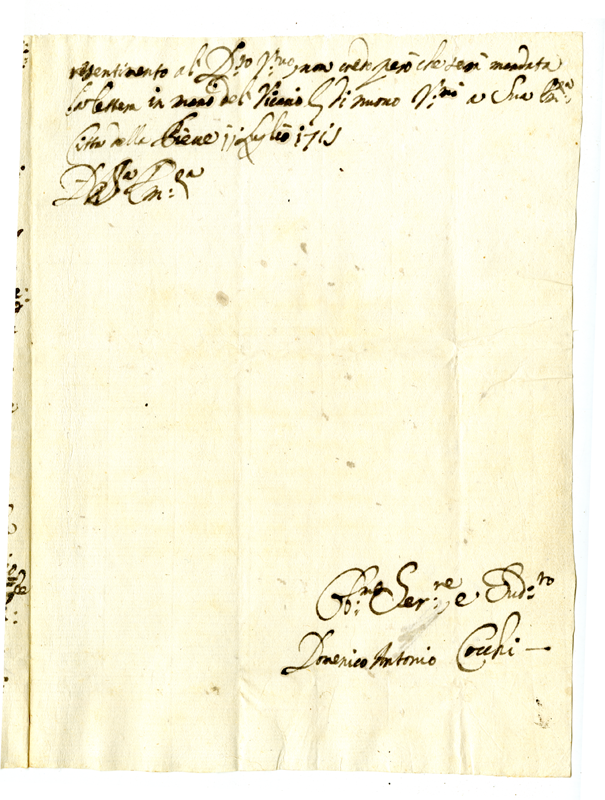 risentimento al D:to non credo però che serà mandata
la lettera in mano del Vicario di nuovo a Sua Em:za
Città della Pieve 11 Luglio 1715
Di Va Em:za
Obb:mo Ser:re e Sud:to
Domenico Antonio Cocchi